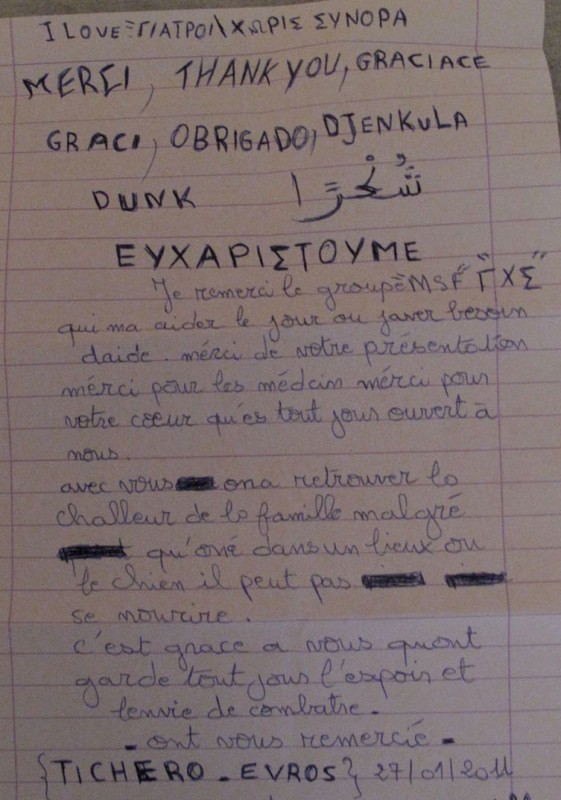 I LOVE "ΓΙΑΤΡΟΙ\ ΧΩΡΙΣ ΣΥΝΟΡΑ
MERΣI, THANK YOU, GRACIACE
GRACI, OBRIGADO, DJENKULA
DUNK شُكْرًا
ΕΥΧΑΡΙΣΤΟΥΜΕ
Je remerci le groupe "MSF" "ΓΧΣ"
qui ma aider le jour ou javer besoin
daide. mérci de votre présentation
mérci pour les médcin mérci pour
votre coeur qu'es tout jous ouvert à
nous.
avec vous ona retrouver la
challeur de la famille malgré
qu'oné dans un lieux ou
le chien il peut pas
se nourire.
c'est grace a vous quont
garde tout jous l'espoir et
lenvie de combatre.
- ont vous remercié -
{TICHERO - EVROS} 27/01/2011